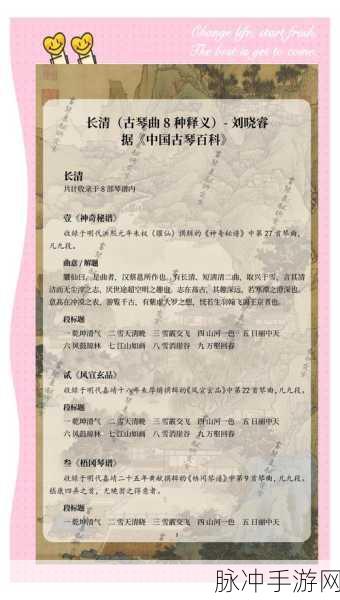 Change life, start fresh.
The best is yet to come.
长清（古琴曲 8 种释义）- 刘晓睿
据《中国古琴百科》
长清
共计收录于 8 部琴谱内
壹《神奇秘谱》
收录于明代洪熙元年朱权（臞仙）撰辑的《神奇秘谱》中第 27 首琴曲，
凡九段。
曲意 / 解题
臞仙曰，是曲者，汉蔡邕所作也。有长清、短清清二曲，取兴于雪，言其清
洁而无尘滓之志，厌世途超空明之趣也。志在高古，其趣深远，若寒潭之澄深也。
意高在冲漠之表，游览千古，有紫虚大罗之想，恍若生羽翰飞谒王京者也。
段标题
一 乾坤清气 二 雪天清晓 三 雪霰交飞 四 山河一色 五 日丽中天
六 风鼓琼林 七 江山如画 八 雪消崖谷 九 万壑回春
贰《风宣玄品》
收录于明代嘉靖十八年朱厚爝撰辑的《风宣玄品》中第 22 首琴曲，凡九段。
段标题
一 乾坤清气 二 雪天清晓 三 雪霰交飞 四 山河一色 五 日丽中天
六 风鼓琼林 七 江山如画 八 雪消崖谷 九 万壑回春
叁《梧冈琴谱》
收录于明代嘉靖二十五年黄献撰辑的《梧冈琴谱》中第 9 首琴曲，凡九段。
嵇康四弄之首，无晓前之得意者。
段标题
一 乾坤清气 二 雪天清晓 三 雪霰交飞 四 山河一色 五 日丽中天
1
脉冲手游网